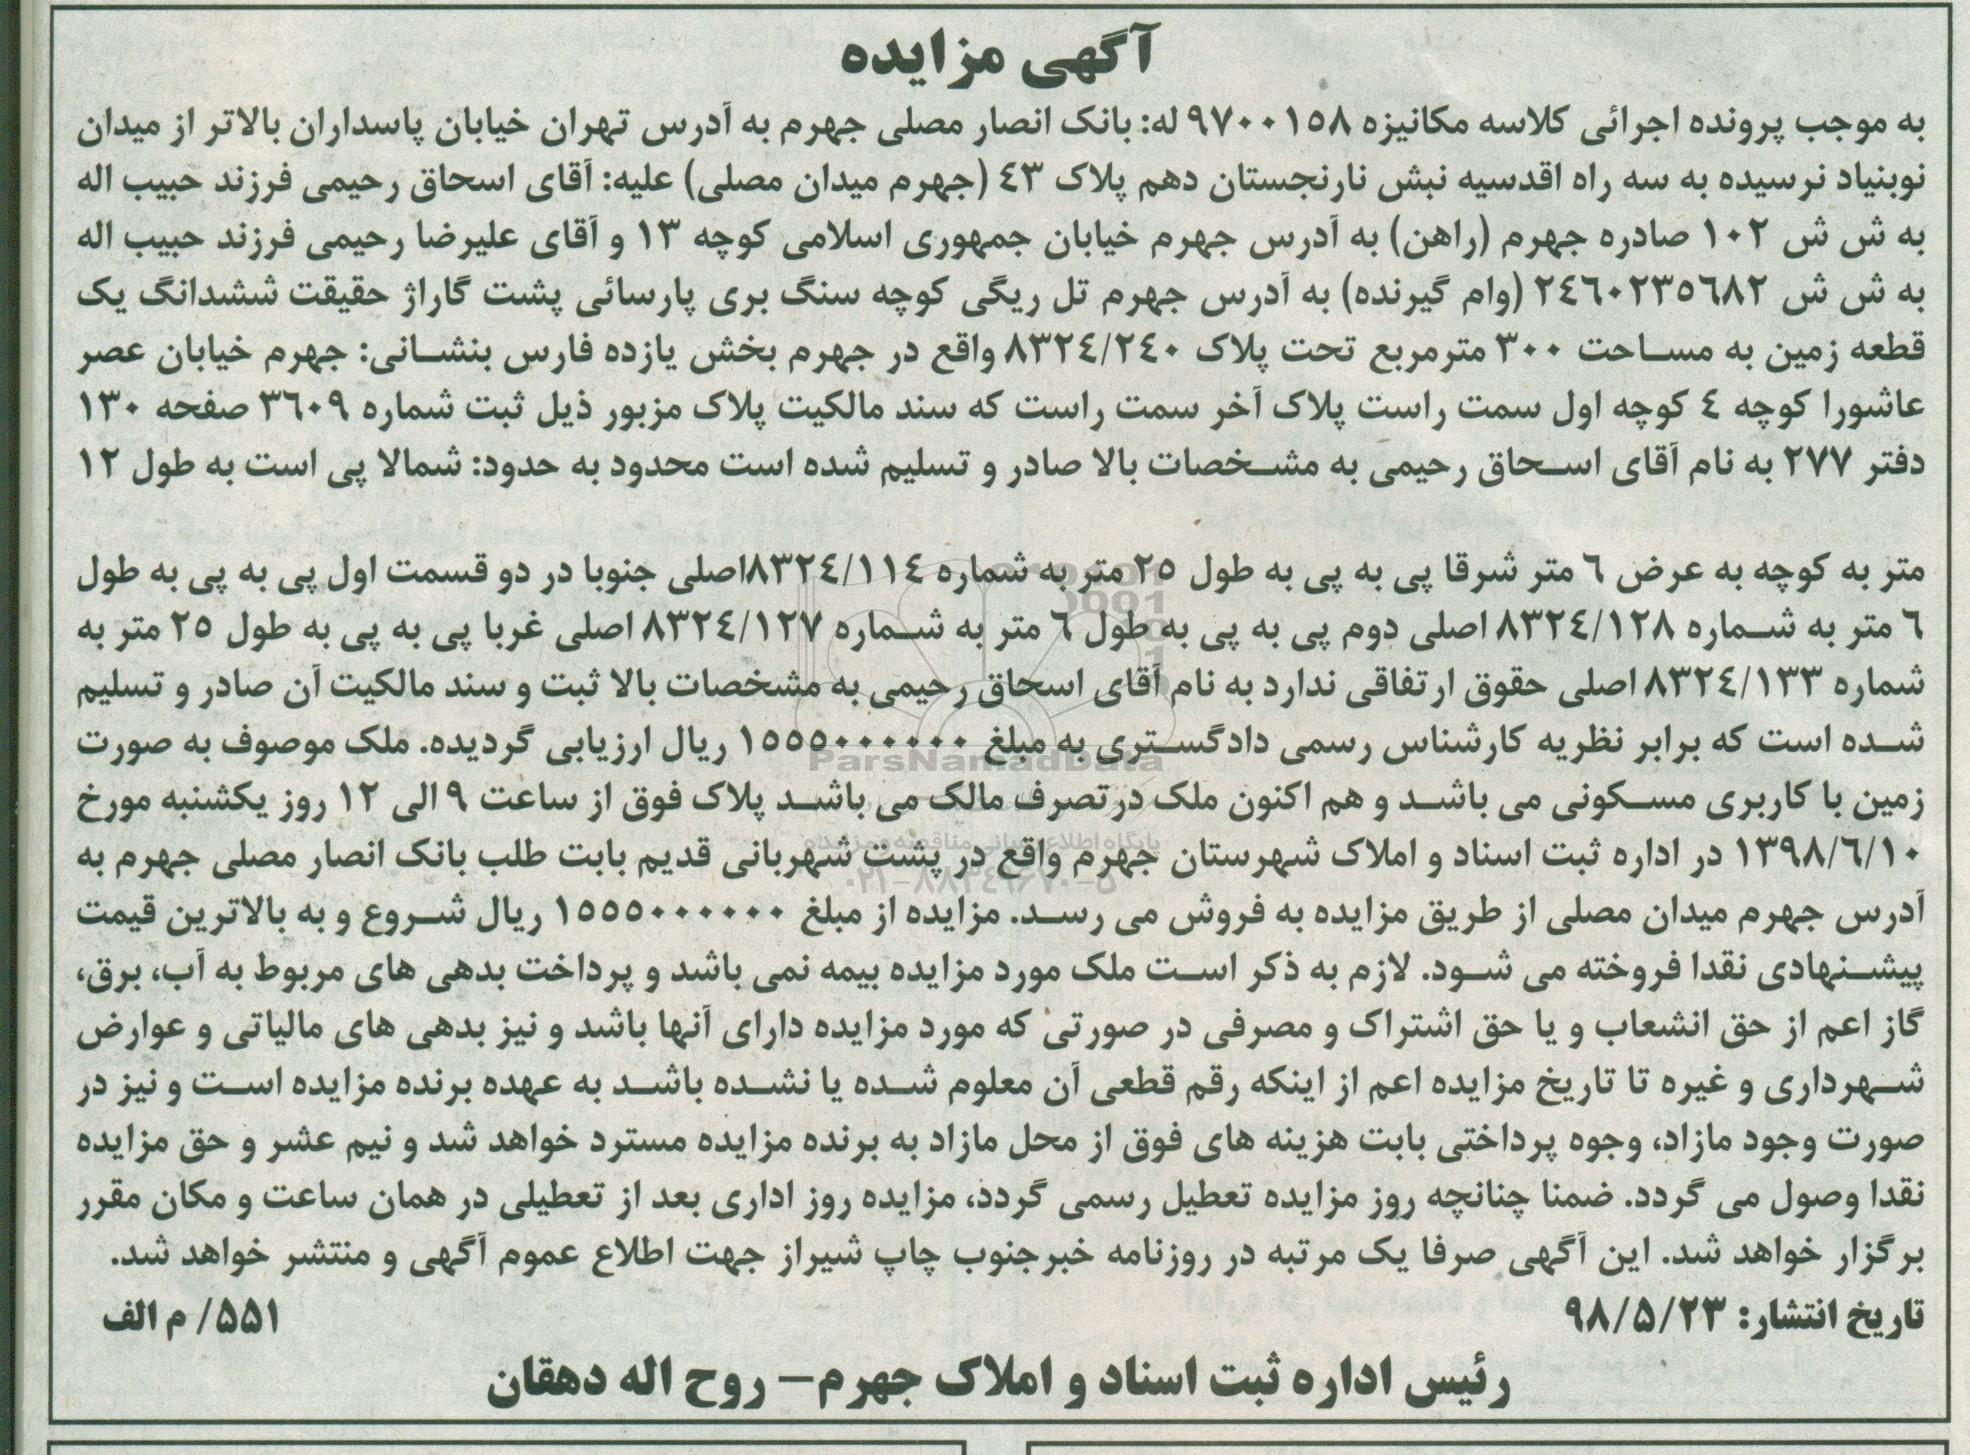 آگهی مزایده
به موجب پرونده اجرائی کلاسه مکانیزه ۹۷۰۰۱۵۸ له: بانک انصار مصلی جهرم به آدرس تهران خیابان پاسداران بالاتر از میدان
نوبنیاد نرسیده به سه راه اقدسیه نبش نارنجستان دهم پلاک ۴۳ (جهرم میدان مصلی) علیه: آقای اسحاق رحیمی فرزند حبیب اله
به ش ش ۱۰۲ صادره جهرم (راهن) به آدرس جهرم خیابان جمهوری اسلامی کوچه ۱۳ و آقای علیرضا رحیمی فرزند حبیب اله
به ش ش ۲۴۶۰۲۳۵۶۸۲ (وام گیرنده) به آدرس جهرم تل ریگی کوچه سنگ بری پارسائی پشت گاراژ حقیقت ششدانگ یک
قطعه زمین به مساحت ۳۰۰ مترمربع تحت پلاک ۸۳۲۴/۲۴۰ واقع در جهرم بخش یازده فارس بنشانی: جهرم خیابان عصر
عاشورا کوچه ۴ کوچه اول سمت راست پلاک آخر سمت راست که سند مالکیت پلاک مزبور ذیل ثبت شماره ۳۶۰۹ صفحه ۱۳۰
دفتر ۲۷۷ به نام آقای اسحاق رحیمی به مشخصات بالا صادر و تسلیم شده است محدود به حدود: شمالا پی است به طول ۱۲
متر به کوچه به عرض ۶ متر شرقا پی به پی به طول ۲۵ متر به شماره ۸۳۲۴/۱۱۴اصلی جنوبا در دو قسمت اول پی به پی به طول
۶ متر به شماره ۸۳۲۴/۱۲۸ اصلی دوم پی به پی به طول ۶ متر به شماره ۸۳۲۴/۱۲۷ اصلی غربا پی به پی به طول ۲۵ متر به
شماره ۸۳۲۴/۱۳۳ اصلی حقوق ارتفاقی ندارد به نام آقای اسحاق رحیمی به مشخصات بالا ثبت و سند مالکیت آن صادر و تسلیم
شده است که برابر نظریه کارشناس رسمی دادگستری به مبلغ ۱۵۵۵۰۰۰۰۰۰ ریال ارزیابی گردیده. ملک موصوف به صورت
ParsNamadData
زمین با کاربری مسکونی می باشد و هم اکنون ملک درتصرف مالک می باشد پلاک فوق از ساعت ۹ الی ۱۲ روز یکشنبه مورخ
پایگاه اطلاع رسانی مناقصه و مزایده
۱۳۹۸/۶/۱۰ در اداره ثبت اسناد و املاک شهرستان جهرم واقع در پشت شهربانی قدیم بابت طلب بانک انصار مصلی جهرم به
۰۲۱-۸۸۳۴۹۶۷۰-۵
آدرس جهرم میدان مصلی از طریق مزایده به فروش می رسد. مزایده از مبلغ ۱۵۵۵۰۰۰۰۰۰ ریال شروع و به بالاترین قیمت
پیشنهادی نقدا فروخته می شود. لازم به ذکر است ملک مورد مزایده بیمه نمی باشد و پرداخت بدهی های مربوط به آب، برق،
گاز اعم از حق انشعاب و یا حق اشتراک و مصرفی در صورتی که مورد مزایده دارای آنها باشد و نیز بدهی های مالیاتی و عوارض
شهرداری و غیره تا تاریخ مزایده اعم از اینکه رقم قطعی آن معلوم شده یا نشده باشد به عهده برنده مزایده است و نیز در
صورت وجود مازاد، وجوه پرداختی بابت هزینه های فوق از محل مازاد به برنده مزایده مسترد خواهد شد و نیم عشر و حق مزایده
نقدا وصول می گردد. ضمنا چنانچه روز مزایده تعطیل رسمی گردد، مزایده روز اداری بعد از تعطیلی در همان ساعت و مکان مقرر
برگزار خواهد شد. این آگهی صرفا یک مرتبه در روزنامه خبرجنوب چاپ شیراز جهت اطلاع عموم آگهی و منتشر خواهد شد.
تاریخ انتشار: ۹۸/۵/۲۳
۵۵۱/ م الف
رئیس اداره ثبت اسناد و املاک جهرم– روح اله دهقان